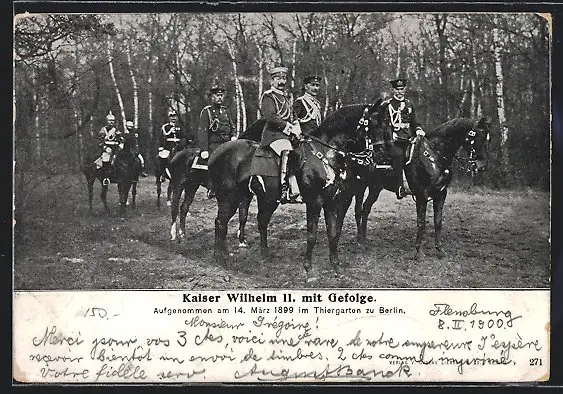 Kaiser Wilhelm II. mit Gefolge.
Aufgenommen am 14. März 1899 im Thiergarten zu Berlin.
150.-
Flensburg
8. II. 1900.
Monsieur Grégoire!
Merci pour vos 3 ctes, voici une rare de notre empereur J'espère
recevoir bientôt un envoi de timbres. 2 ctes comme imprimé.
Votre fidèle serv. August Banck
VERLAG
271